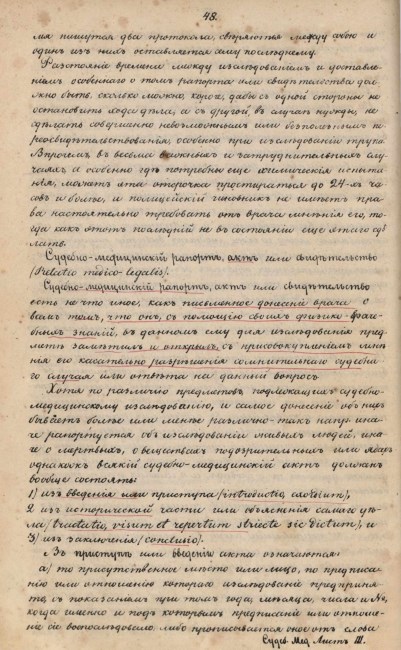 48.
мя пишутся два протокола, сверяются между собою и
один из них оставляется сему последнему.
Разстояніе времени между изслѣдованіем и доставле-
ніем особеннаго о том рапорта или свидѣтельства дол-
жно быть сколько можно, короче, дабы с одной стороны не
остановить хода дѣла, а с другой, в случаѣ нужды, не
сдѣлать совершенно невозможным или безполезным пе-
реосвидѣтельствованія, особенно при изслѣдованіи трупа.
Впрочем, в весьма важных и затруднительных слу-
чаях, а особенно гдѣ потребны еще химическія испыта-
нія, может эта отсрочка простираться до 24-х ча-
сов и болѣе, и полицейскій чиновник не имѣет пра-
ва настоятельно требовать от врача мнѣнія его, то-
гда как этот послѣдній не в состояніи еще этаго сдѣ
лать.
Судебно-медицинскій рапорт, акт или свидѣтельство
(Relatio medico-legalis).
Судебно-медицинскій рапорт, акт или свидѣтельство
есть не что иное, как письменное донесеніе врача о
всем том, что он, с помощію своих физико-враче-
бных знаній, в данном ему для изслѣдованія пред-
метѣ замѣтил и открыл, с присовокупленіем мнѣ-
нія его касательно разрѣшенія сомнительнаго судебна
го случая или отвѣта на данный вопрос.
Хотя по различію предметов подлежащих судебно-
медицинскому изслѣдованію, и самое донесеніе об них
бывает болѣе или менѣе различно-так напр: ина-
че рапортуется об изслѣдованіи живых людей, ина-
че о мертвых, о веществах подозрительных или ядах
однакож всякій судебно-медицинскій акт должен
вообще состоять:
1) из введенія или приступа (introductio, exordium),
2 из исторической части или объясненія самаго дѣ-
ла (tractatio, visum et repertum stricte sic dictum), и
3) из заключенія (conclusio).
В приступѣ или введеніи акта означаются:
а) то присутственное мѣсто или лицо, по предписа-
нію или отношенію котораго изслѣдованіе предприня-
то, с показаніем при том года, мѣсяца, числа и №,
когда именно и под которым предписаніе или отноше-
ніе сіе воспослѣдовало либо прописывается оное от слова
Судеб. Мед. Лист III.